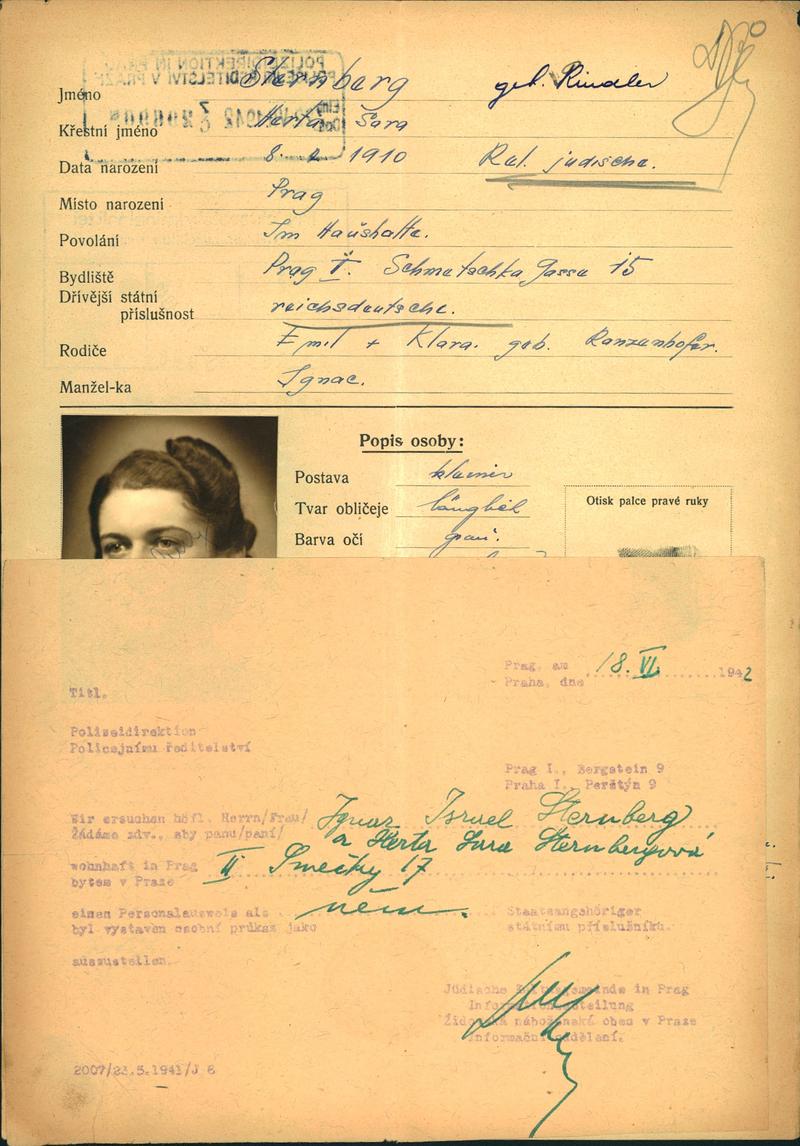 POLIZEIDIREKTION IN PRAG
POLICEJNÍ ŘEDITELSTVÍ V PRAZE
1942
Jméno Sternberg geb. Rindler
Křestní jméno Herta Sara
Data narození 8. 1910 Rel. jüdische.
Místo narození Prag
Povolání Im Haushalte.
Bydliště Prag II. Schmetschka Gasse 15
Dřívější státní
příslušnost reichsdeutsche.
Rodiče Emil + Klara. geb. Ranzenhofer.
Manžel-ka Ignac.
Popis osoby:
Postava kleiner
Tvar obličeje länglich
Barva očí grau.
Otisk palce pravé ruky
Prag, am 18. VI. 1942
Praha, dne
Titl.
Polizeidirektion
Policejnímu ředitelství
Prag I., Bergstein 9
Praha I., Perštýn 9
Wir ersuchen höfl. Herrn/Frau/ Ignaz Israel Sternberg
Žádáme zdv., aby panu/paní/ a Herta Sara Sternbergová
wohnhaft in Prag II Smečky 17
bytem v Praze
einen Personalausweis als něm. Staatsangehöriger
byl vystaven osobní průkaz jako státnímu příslušníku.
auszustellen.
Jüdische Kultusgemeinde in Prag
Informationsabteilung
Židovská náboženská obec v Praze
Informační oddělení.
2007/23.5.1941/J 6